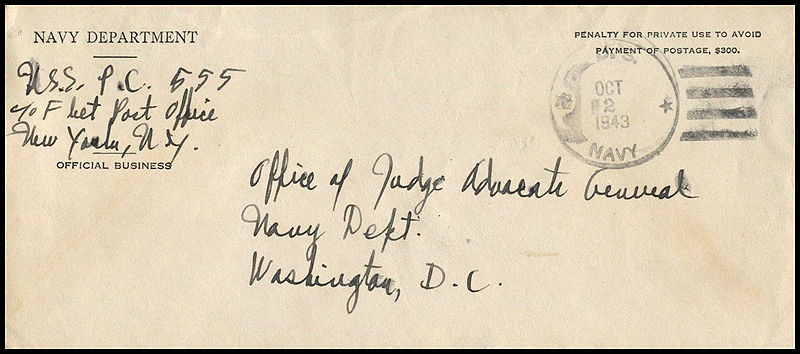 NAVY DEPARTMENT
U.S.S. P.C. 555
c/o Fleet Post Office
New York, N.Y.
OFFICIAL BUSINESS
PENALTY FOR PRIVATE USE TO AVOID
PAYMENT OF POSTAGE, $300.
OCT
2
1943
NAVY
Office of Judge Advocate General
Navy Dept.
Washington, D.C.